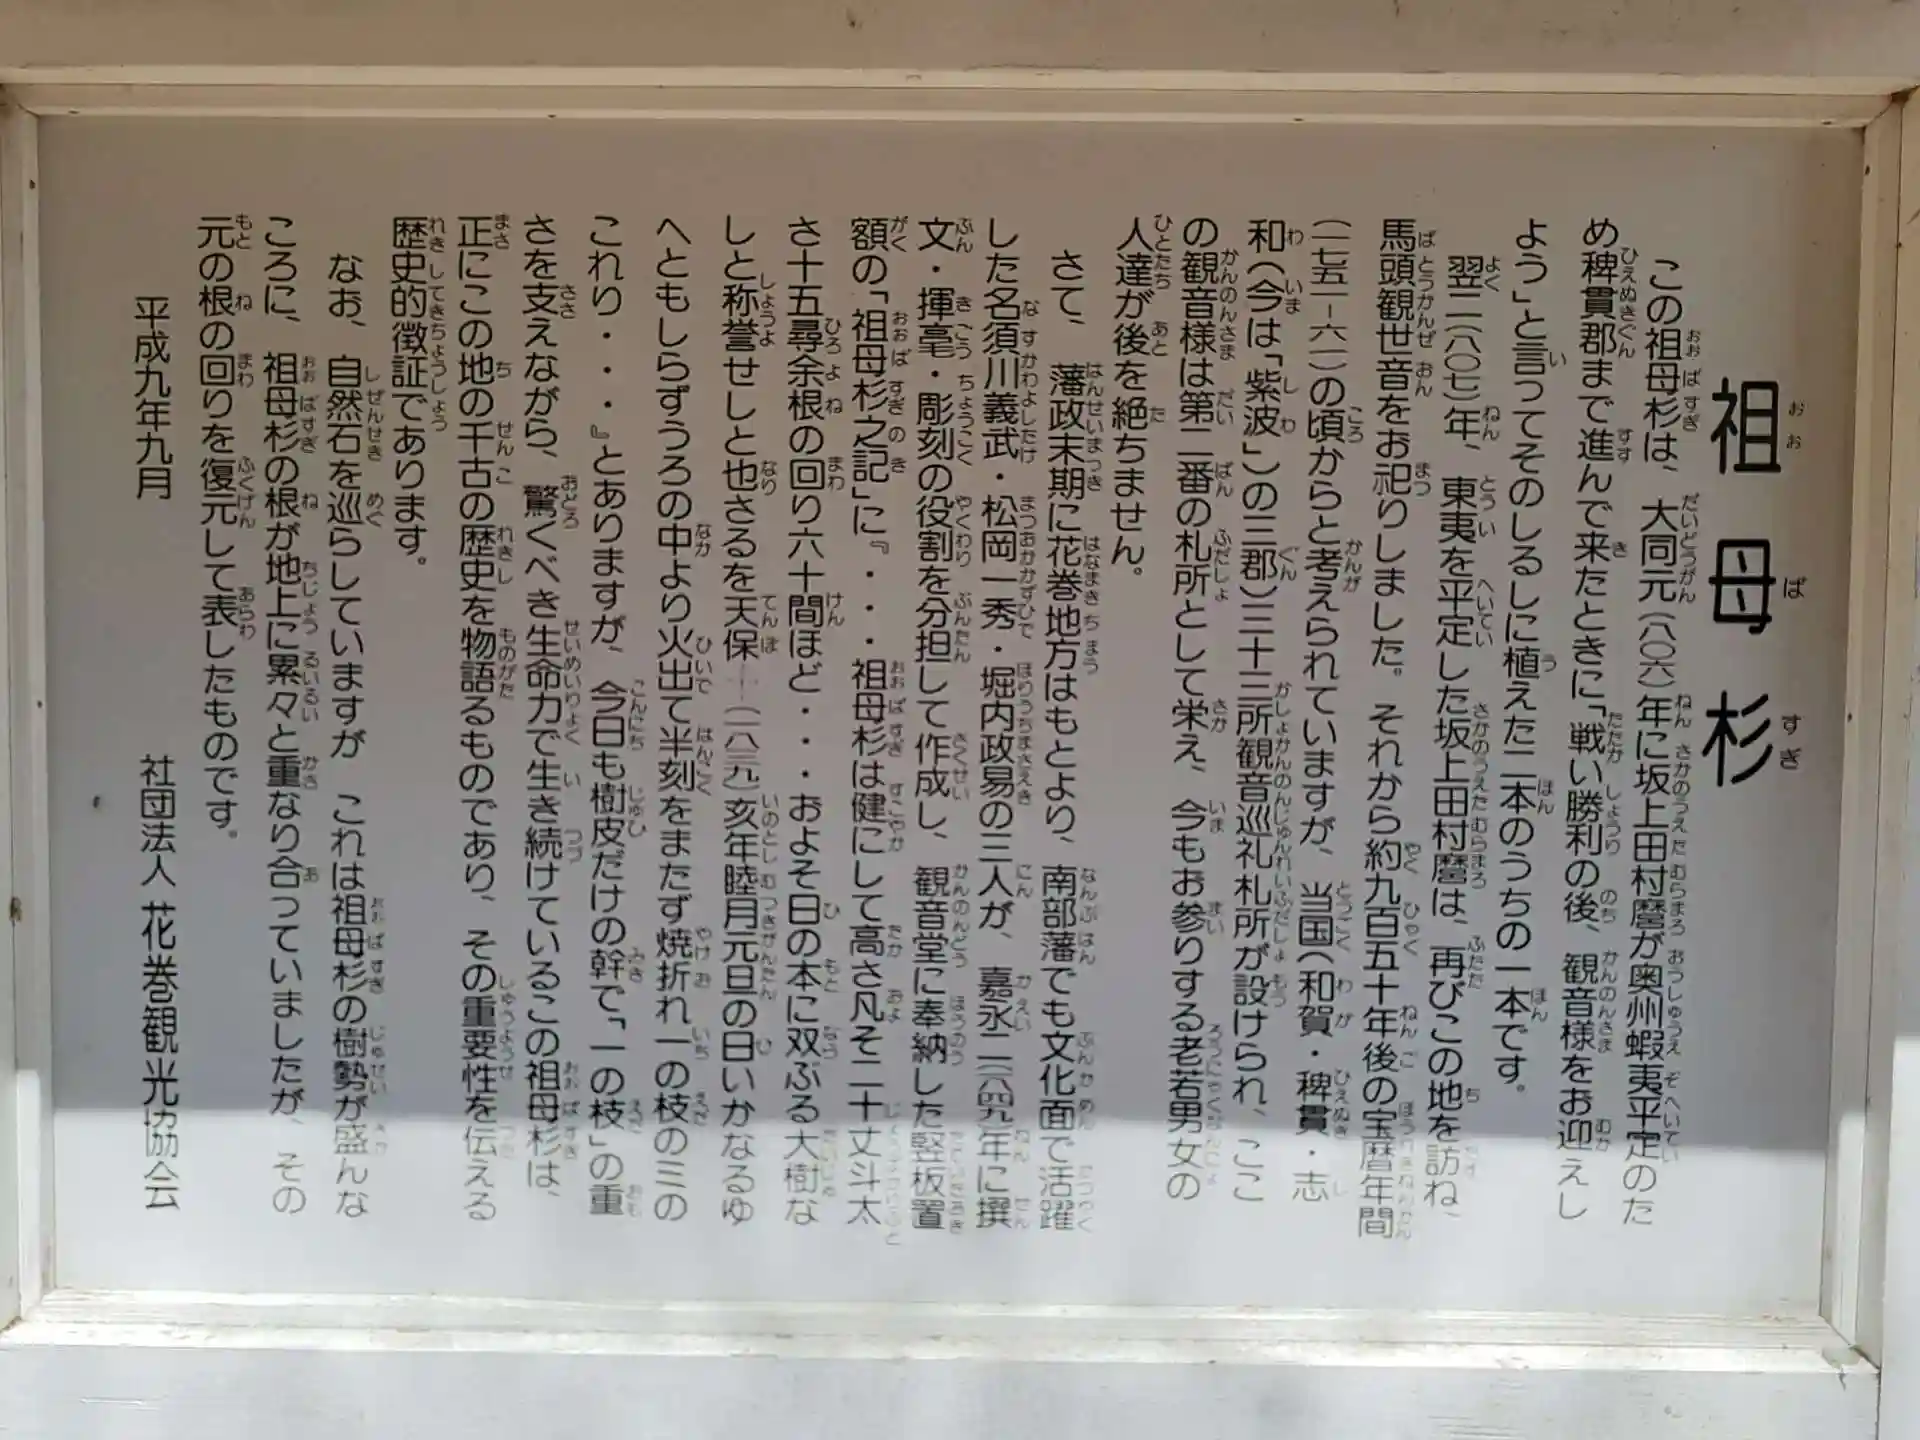 祖母杉
この祖母杉は、大同元(八〇六)年に坂上田村麿が奥州蝦夷平定のた
め稗貫郡まで進んで来たときに「戦い勝利の後、観音様をお迎えし
よう」と言ってそのしるしに植えた二本のうちの一本です。
翌二(八〇七)年、東夷を平定した坂上田村麿は、再びこの地を訪ね、
馬頭観世音をお祀りしました。それから約九百五十年後の宝暦年間
(一七五一–六一)の頃からと考えられていますが、当国(和賀・稗貫・志
和(今は「紫波」)の三郡)三十三所観音巡礼札所が設けられ、ここ
の観音様は第二番の札所として栄え、今もお参りする老若男女の
人達が後を絶ちません。
さて、藩政末期に花巻地方はもとより、南部藩でも文化面で活躍
した名須川義武・松岡一秀・堀内政易の三人が、嘉永二(一八四九)年に撰
文・揮毫・彫刻の役割を分担して作成し、観音堂に奉納した竪板置
額の「祖母杉之記」に『・・・祖母杉は健にして高さ凡そ二十丈斗太
さ十五尋余根の回り六十間ほど・・・およそ日の本に双ぶる大樹な
しと称誉せしと也さるを天保十(一八三九)亥年睦月元旦の日いかなるゆ
へともしらずうろの中より火出て半刻をまたず焼折れ一の枝のミの
これり・・・』とありますが、今日も樹皮だけの幹で「一の枝」の重
さを支えながら、驚くべき生命力で生き続けているこの祖母杉は、
正にこの地の千古の歴史を物語るものであり、その重要性を伝える
歴史的徴証であります。
なお、自然石を巡らしていますが これは祖母杉の樹勢が盛んな
ころに、祖母杉の根が地上に累々と重なり合っていましたが、その
元の根の回りを復元して表したものです。
平成九年九月
社団法人 花巻観光協会